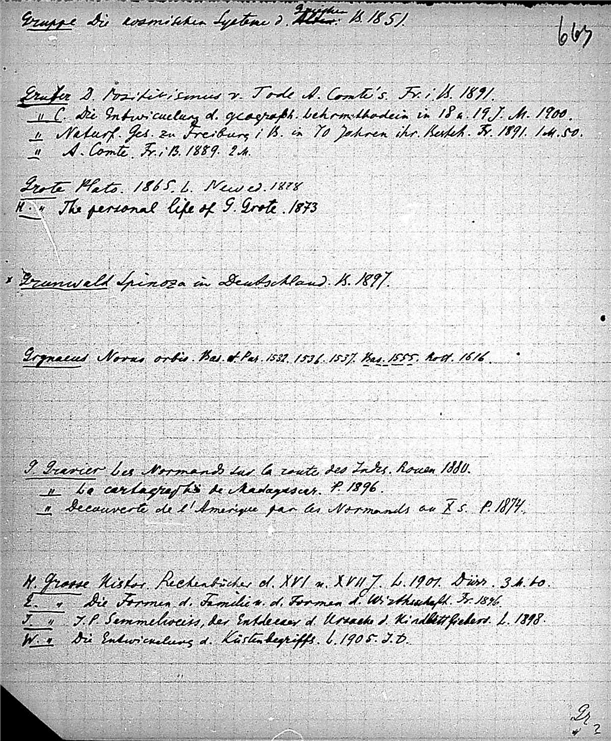 667
Gruppe Die kosmischen Systeme d. Griechen B. 1851.
Gruber D. Positivismus v. Tode A. Comte's. Fr. i. B. 1891.
" C. Die Entwickelung d. geograph. Lehrmethoden in 18 u. 19 J. M. 1900.
" Naturf. Ges. zu Freiburg i B. in 70 Jahren ihr. Besteh. Fr. 1891. 1 M. 50.
" A. Comte. Fr. i B. 1889. 2 M.
Grote Plato. 1865. L. New ed. 1888
H. " The personal life of G. Grote. 1873
× Grunwald Spinoza in Deutschland. B. 1897.
Grynaeus Novus orbis. Bas. et Par. 1532. 1536. 1537. Bas. 1555. Rott. 1616.
G. Gravier Les Normands sur la route des Indes. Rouen 1880.
" La cartographie de Madagascar. P. 1896.
" Decouverte de l'Amerique par les Normands au X s. P. 1874.
H. Grosse Histor. Rechenbücher d. XVI u. XVII J. L. 1901. Dürr. 3 M. 60.
E. " Die Formen d. Familie u. d. Formen d. Wirthschaft. Fr. 1896.
J. " J. P. Semmelweis, der Entdecker d. Ursache d. Kindbettfiebers. L. 1898.
W. " Die Entwickelung d. Küstenbegriffs. L. 1905. I. D.
Gr
2